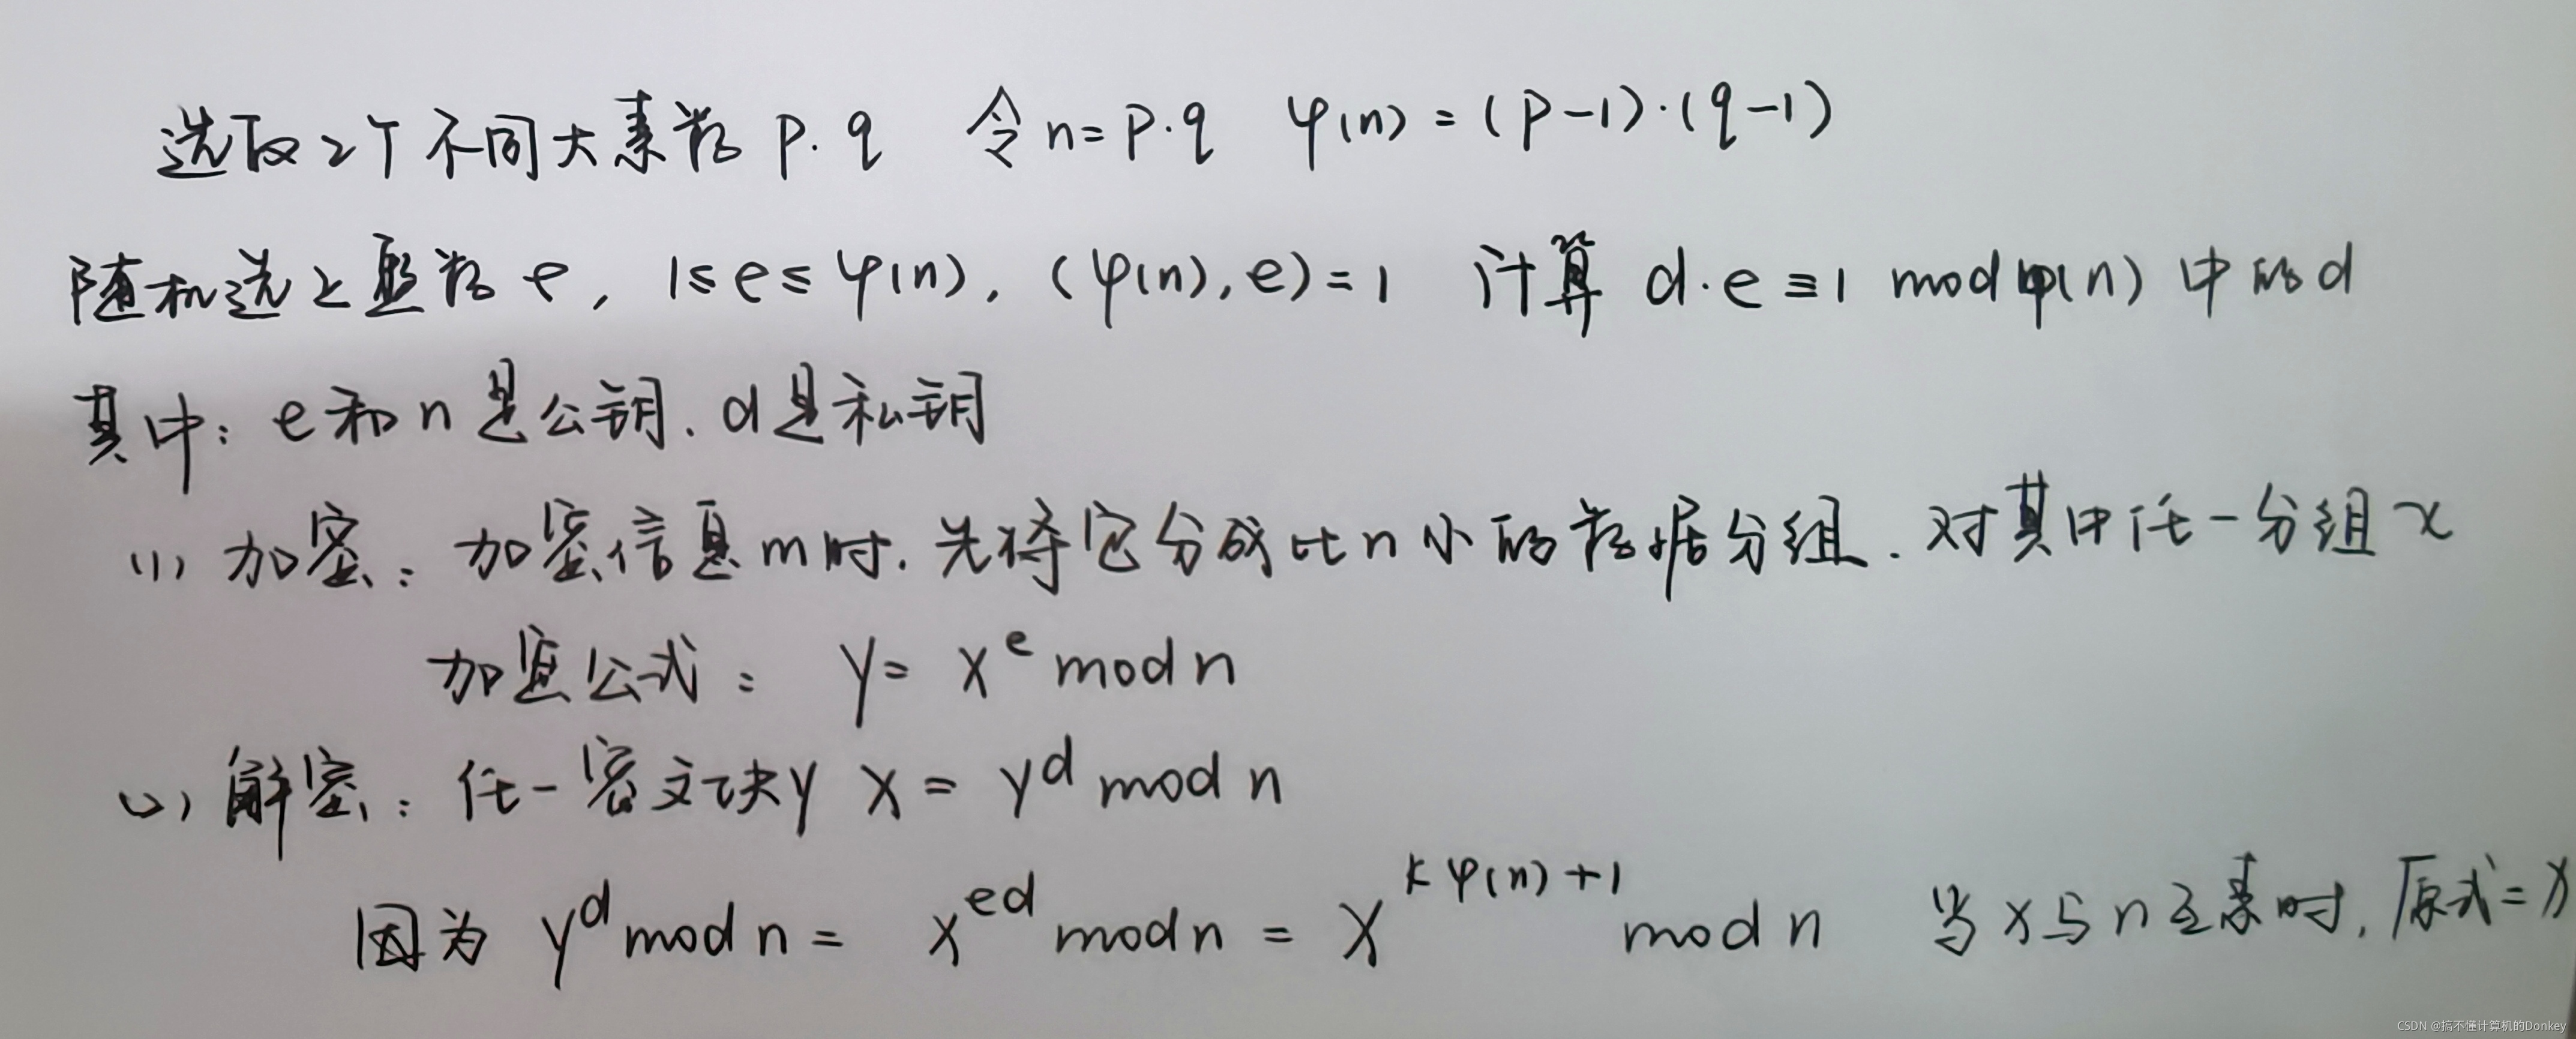 选取2个不同大素数 p.q 令 n=p·q φ(n)=(p-1)·(q-1)
随机选上整数 e, 1≤e≤φ(n), (φ(n),e)=1 计算 d·e≡1 modφ(n) 中的d
其中: e和n是公钥. d是私钥
(1) 加密: 加密信息m时. 先将它分成比n小的数据分组. 对其中任一分组 x
加密公式: y= x^e mod n
(2) 解密: 任一密文块y x = y^d mod n
因为 y^d mod n = x^ed mod n = x^kφ(n)+1 mod n 当x与n互素时, 原式=x
CSDN @搞不懂计算机的Donkey